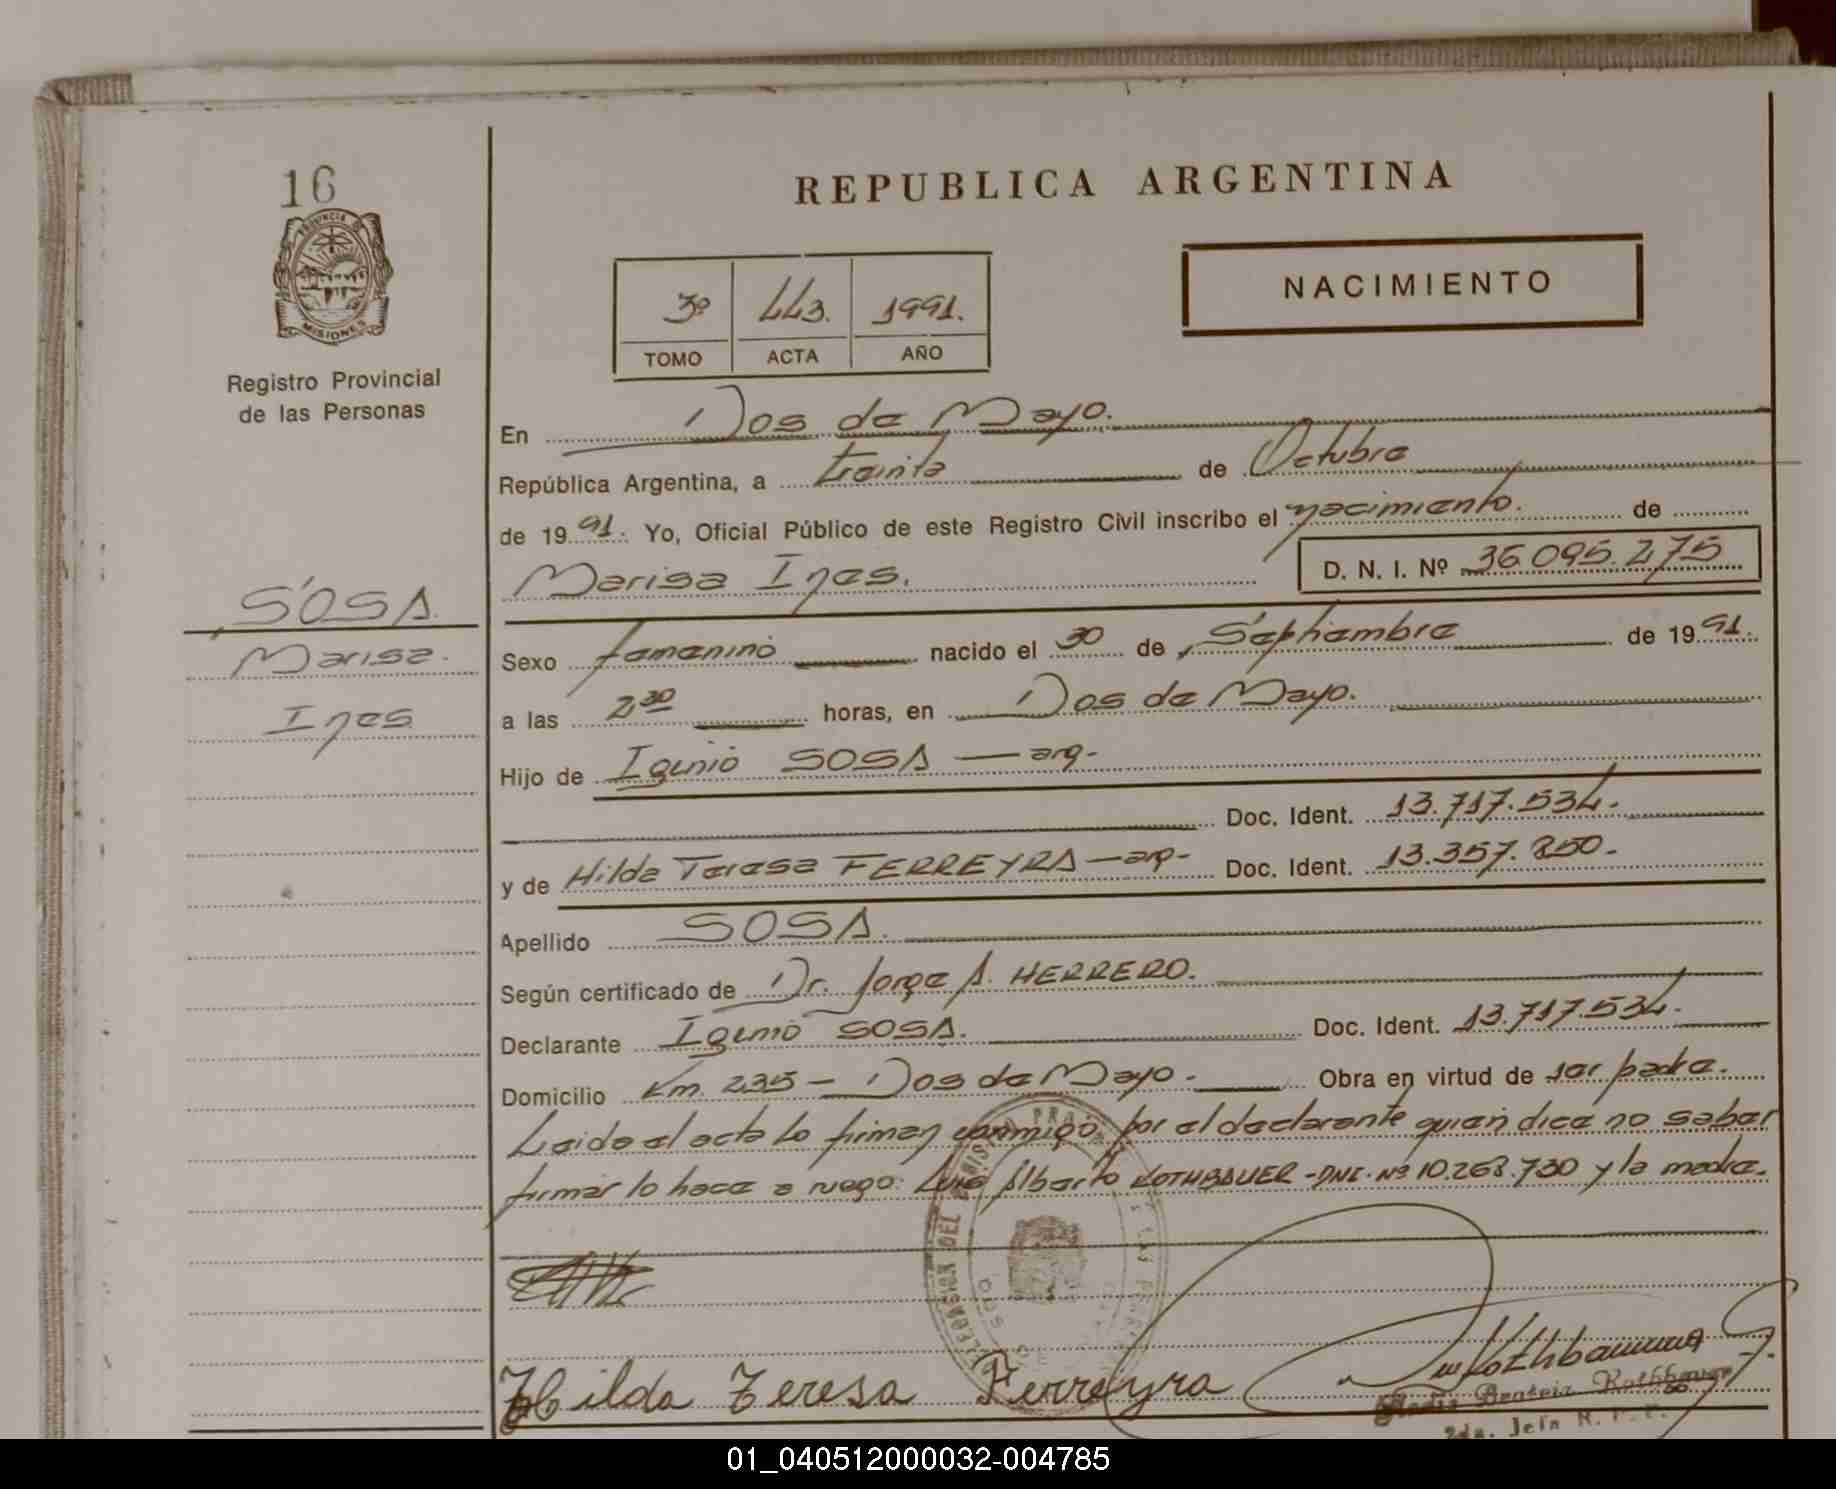 16
PROVINCIA DE
MISIONES
Registro Provincial
de las Personas
SOSA
Marisa
Ines
REPUBLICA ARGENTINA
NACIMIENTO
3º 443. 1991.
TOMO ACTA AÑO
En Dos de Mayo.
República Argentina, a treinta de Octubre
de 1991. Yo, Oficial Público de este Registro Civil inscribo el nacimiento. de
Marisa Ines. D. N. I. Nº 36.095.275
Sexo femenino nacido el 30 de Septiembre de 1991.
a las 2 30 horas, en Dos de Mayo.
Hijo de Iginio SOSA — arg-
Doc. Ident. 13.717.534.
y de Hilda Teresa FERREYRA — arg- Doc. Ident. 13.357.850.
Apellido SOSA.
Según certificado de Dr. Jorge A. HERRERO.
Declarante Iginio SOSA. Doc. Ident. 13.717.534.
Domicilio Km. 235 - Dos de Mayo. Obra en virtud de ser padre.
Leida el acta lo firman conmigo, por el declarante quien dice no saber
firmar lo hace a ruego: Luis Alberto ROTHBAUER - DNI. Nº 10.268.730 y la madre.
Hilda Teresa Ferreyra
Beatriz Rothbauer
2da. Jefa R. P. P.
01_040512000032-004785